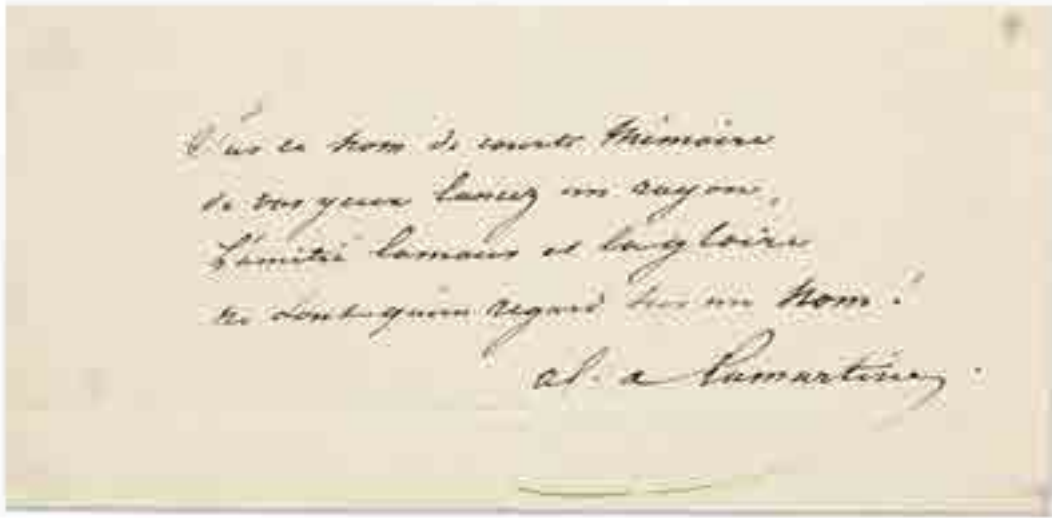 Sur ce nom de courte Mémoire
de vos yeux lancez un rayon,
L'amitié lamour et la gloire
ne sont quun regard sur un nom!
al. de Lamartine.